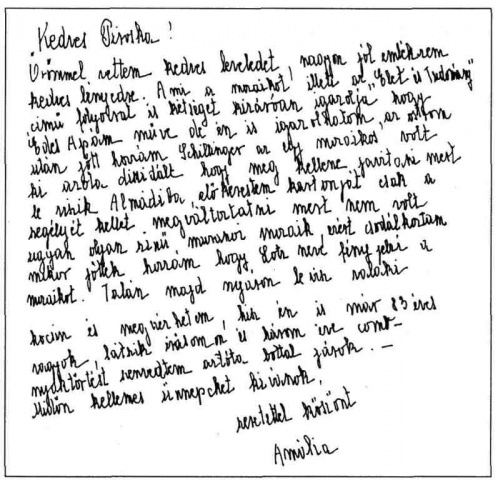 Kedves Piroska!
Örömmel vettem kedves leveledet, nagyon jól emlékszem
kedves lényedre. A mi a mozaikot illeti az "Élet és Tudomány"
című folyóirat is kétséget kizáróan igazolja hogy
Édes Apám műve de én is igazolhatom, az ostrom
után jött hozzám Schillinger az egy mozaikos volt
ki azóta disszidált hogy meg kellene javítani mert
le esik Almádiba, elő kerestem kartonját csak a
szegélyét kellet megváltoztatni mert nem volt
ugyan olyan színü muranoi mozaik, ezért csodálkoztam
mikor jöttek hozzám hogy Lotz neve fényjelzi a
mozaikot. Talán majd nyáron le visz valaki
kocsin és megnézhetem, hisz én is már 83 éves
vagyok, látszik írásomon is három éve comb-
nyaktörést szenvedtem azóta bottal járok. —
kellemes ünnepeket kívánok,
szeretettel köszönt
Amália